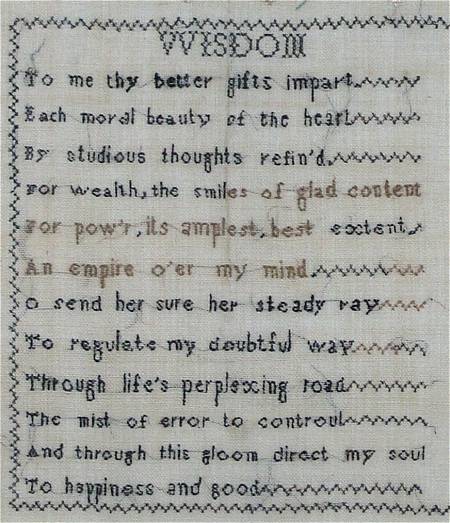 WISDOM
To me thy better gifts impart
Each moral beauty of the heart
By studious thoughts refin'd,
For wealth, the smiles of glad content
For pow'r, its amplest, best extent,
An empire o'er my mind,
O send her sure her steady ray
To regulate my doubtful way
Through life's perplexing road
The mist of error to controul
And through this gloom direct my soul
To happiness and good